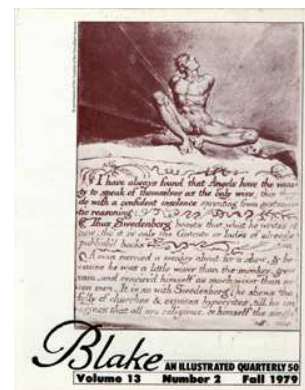 I have always found that Angels have the vani-
ty to speak of themselves as the only wise; this they
do with a confident insolence sprouting from systema-
tic reasoning:
Thus Swedenborg boasts that what he writes is
new; tho it is only the Contents or Index of already
publish'd books
A man carried a monkey about for a shew, & be-
cause he was a little wiser than the monkey, grew
vain, and conciev'd himself as much wiser than se-
ven men. It is so with Swedenborg; he shews the
folly of churches & exposes hypocrites, till he im-
agines that all are religious, & himself the single
Blake
AN ILLUSTRATED QUARTERLY 50
Volume 13 Number 2 Fall 1979